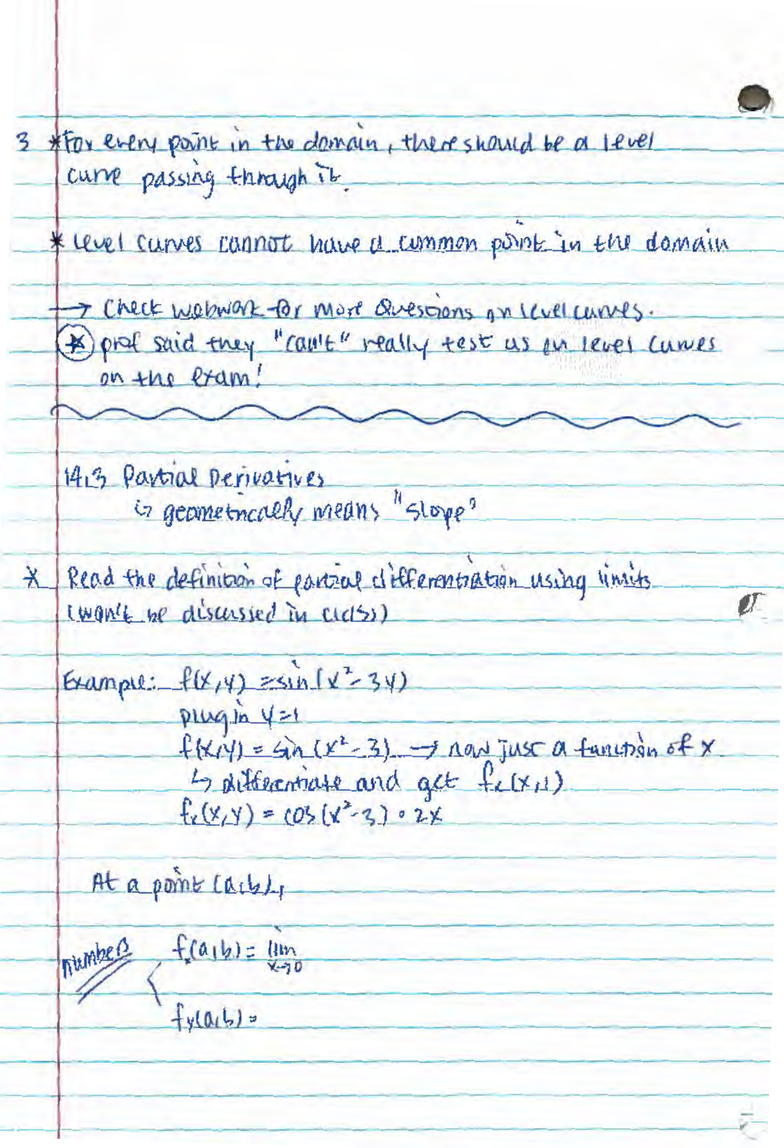 3 *For every point in the domain, there should be a level
curve passing through it.
* Level curves cannot have a common point in the domain
→ Check webwork for more Questions on level curves.
* prof said they "can't" really test us on level curves
on the exam!
14.3 Partial Derivatives
↳ geometrically means "slope"
* Read the definition of partial differentiation using limits
(won't be discussed in class)
Example: f(x,y) = sin(x²-3y)
plug in y=1
f(x,y) = sin(x²-3) → now just a function of x
↳ differentiate and get fₓ(x,1)
fₓ(x,y) = cos(x²-3) • 2x
At a point (a,b),
numbers fₓ(a,b) = lim
x→0
fy(a,b) =